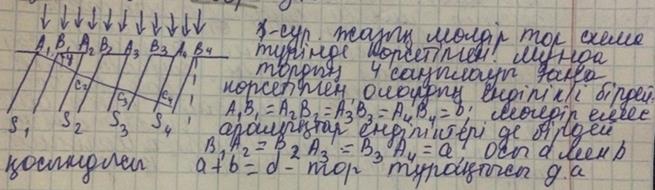 A₁ B₁ A₂ B₂ A₃ B₃ A₄ B₄
φ
C₂ C₃ C₄
S₁ S₂ S₃ S₄
сур. жазық мөлдір тор схема
түрінде көрсетілген. мұнда
тордың 4 саңылауы ғана
көрсетілген олардың ендіг і бірдей
A₁B₁ = A₂B₂ = A₃B₃ = A₄B₄ = b; мөлдір емес
аралықтар ендіктері де бірдей
B₁A₂ = B₂A₃ = B₃A₄ = a осы а мен b
қосындысы a + b = d - тор тұрақтысы д.а